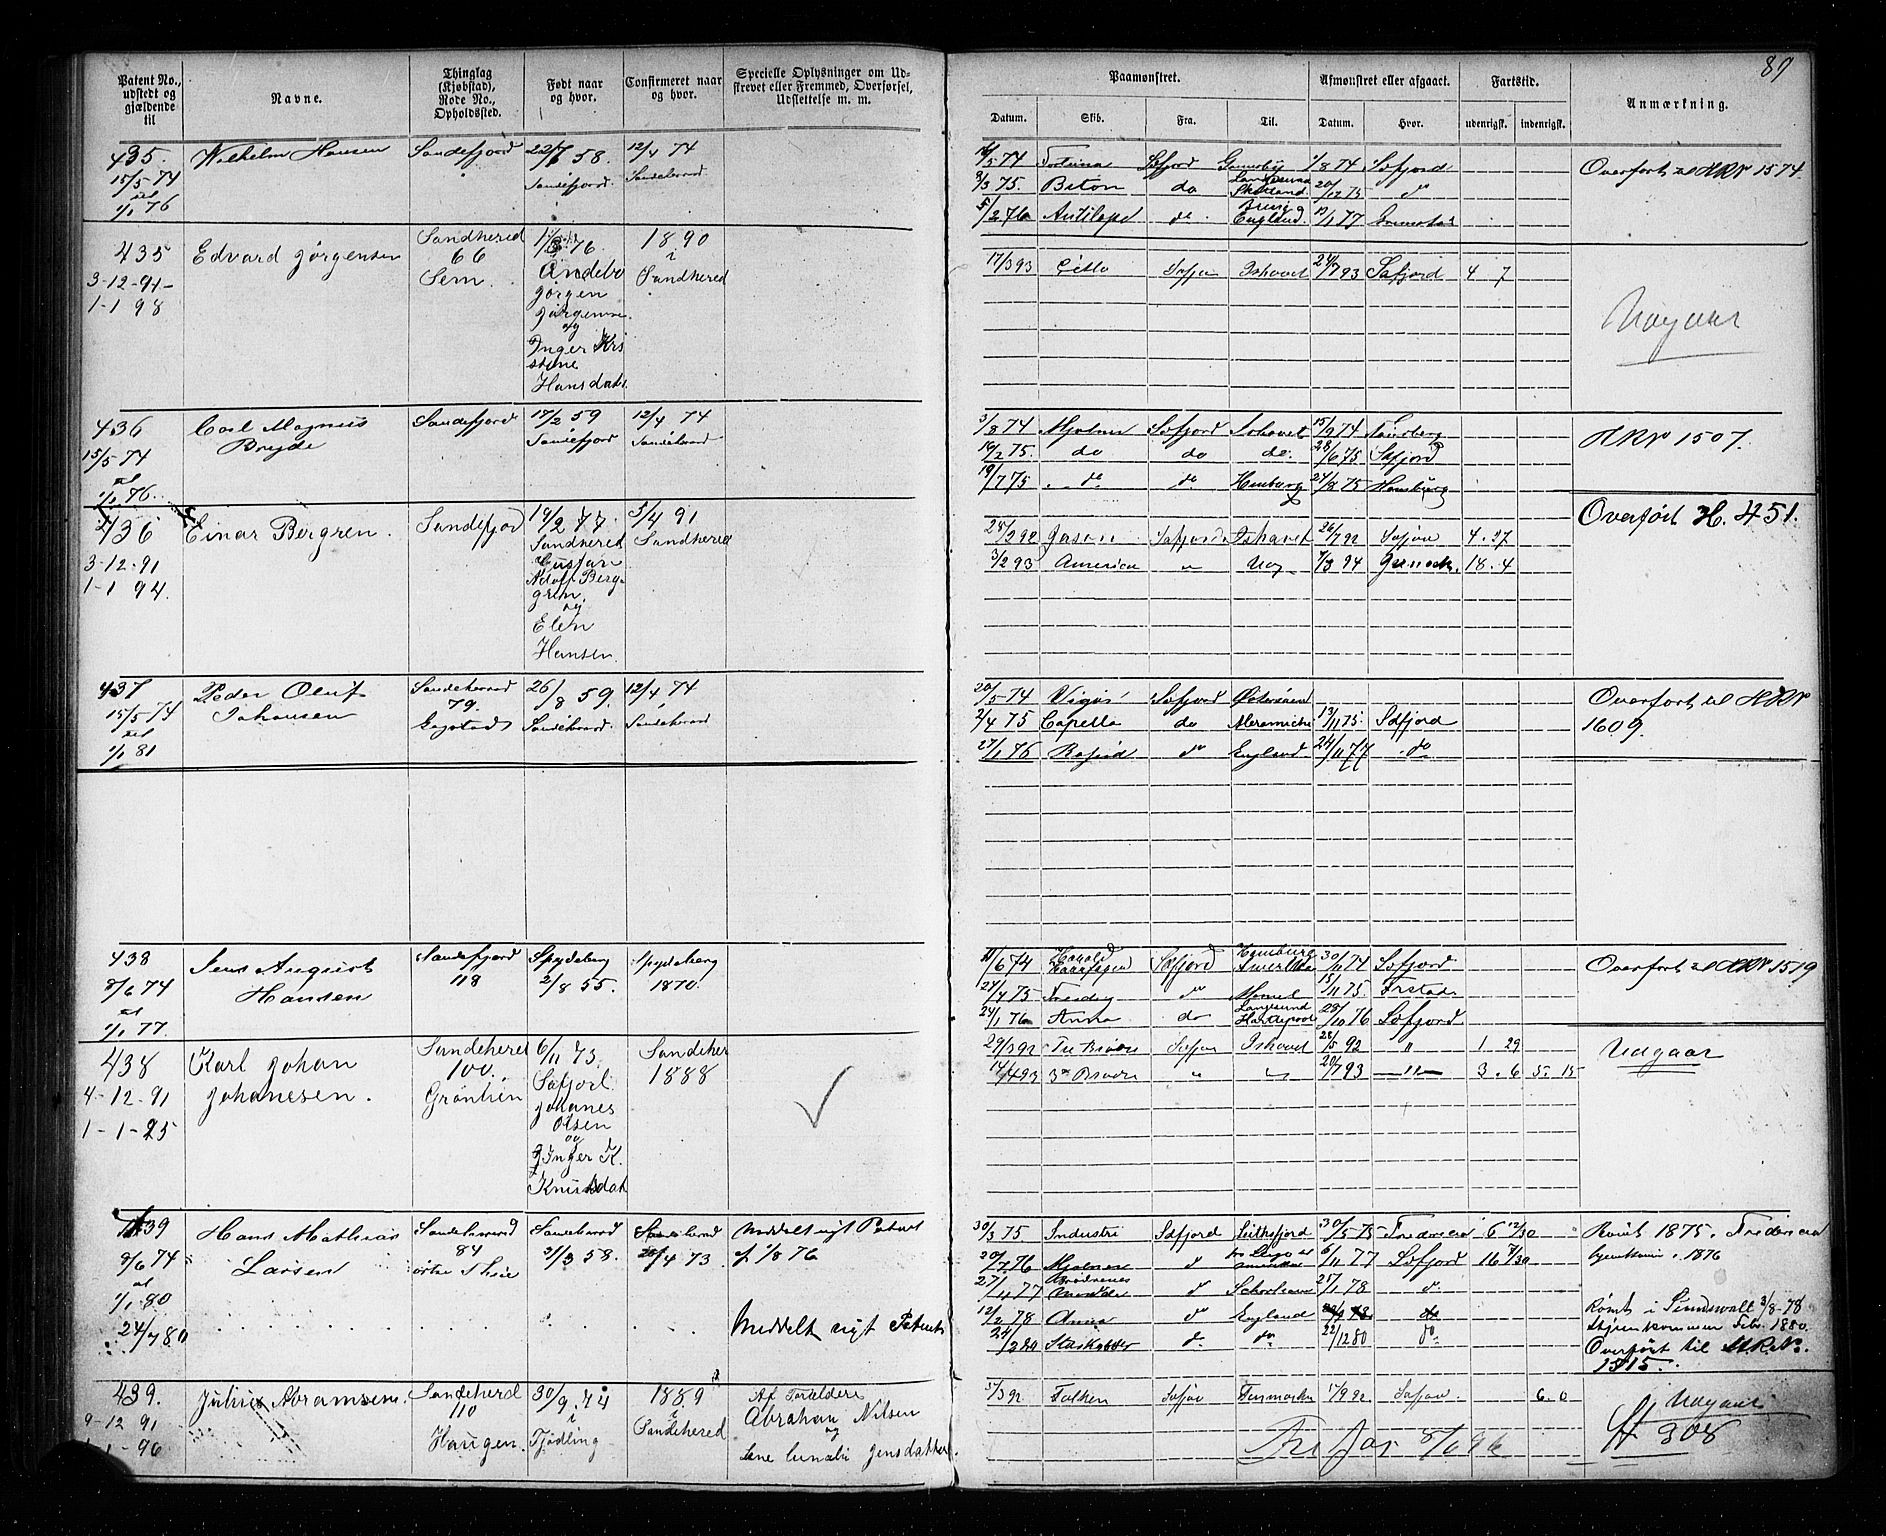 89
Patent No., udstedt og gjældende til
Navne.
Thinglag (Kjøbstad), Rode No., Opholdssted.
Født naar og hvor.
Confirmeret naar og hvor.
Specielle Oplysninger om Udstrevet eller Fremmed, Overførsel, Udslettelse m. m.
Paamønstret.
Afmønstret eller afgaaet.
Fartstid.
Anmærkning.
Datum. Skib. Fra. Til. Datum. Hvor. udenrigsk. indenrigsk.
435. Wilhelm Hansen Sandefjord 22/7 58. 12/4 74
15/5 74 Sandefjord. Sandeherred
til
1/1 76
16/5 74 Fortuna Sfjord 1/8 74 Sfjord Overført til HRN 1574
3/3 75. Beton do 20/12 75 do
5/2 76 Antilope do. England. 12/1 77
435 Edvard Jørgensen Sandhered 76 1890
3-12-91- 66 Andebo i
1-1 98 Sem. Jørgen Sandhered
Jørgensen
og
Inger Kri
stine
Hansdatr.
17/3 93 Sfjor Ishavet 24/7 93 Safjord 4 7
Udgaar
436 Carl Magnus Sandefjord 17/2 59 12/4 74
15/5 74 Bryde Sandefjord Sandeherred
til
1/1 76.
3/8 74 Mjølner Sfjord Ishavet 15/9 74 HRN 1507.
19/2 75. do do do. 28/6 75 Sfjord
19/7 75 do do Hamburg 27/8 75 Hamburg
436 Einar Bergren. Sandefjord 19/2 77. 3/4 91
3-12-91 Sandhered Sandhered
1-1 94. Gustav
Adolf Berg-
gren.
og
Elen
Hansen.
Overført H. 451.
28/2 92 Jason Safjord Ishavet 26/7 92 Safjor 4. 27
3/2 93 America " 7/3 94 18. 4
437 Peder Oluf Sandeherred 26/8 59. 12/4 74
15/5 74 Johansen 79. Sandeherred. Sandeherred
til Gogstad
1/1 81
20/5 74 Sfjord Østersøen Overført til HRN
2/4 75 Capella do 13/11 75. Sfjord 1609.
27/1 76 do England 24/11 77 do
438 Jens August Sandefjord Spydeberg Spydeberg
8/6 74 Hansen 118 2/8 55. 1870.
til
1/1 77.
11/6 74 Harald Haarfager Sfjord Hamburg Amerika 30/11 74 Sfjord Overført til HRN 1519
24/4 75 do Memel 15/11 75.
24/1 76 Anna do Langesund Hartlepool 29/10 76 Sfjord
438 Karl Johan Sandehered 6/11 73. Sandeher
4-12-91 Johanesen. 100. Safjord. 1888
1-1-95 Grønlien Johanes
Olsen
og
Inger K.
Knutsdat
29/3 92 Tre Brødre Safjor Ishavet 28/5 92 " 1 29 Udgaar
14/4 93 3e Brødre " " 20/7 93 " 3. 6 5. 15
439 Hans Mathias Sandeherred Sandeherred Sandeherred Meddelt nyt Patent
8/6 74 Larsen 84 21/3 58. 4 73 1/8 76
til østre Thue
1/1 80
24/7 80 Meddelt nyt Patent
30/3 75 Industri Sdfjord 30/5 75 Fredericia 6 12/30 Rømt 1875. Fredericia
20/7 76 Mjølner do 6/11 77 Sdfjord 16 7/30 igjenkommen i 1876
27/4 77 Brødrenes Minde do 25/1 78 do.
12/2 78 Anna do England do Rømt i Sundswall 3/8-78
do. do. 22/12 80 do. Igjenkommen Febr 1880.
Overført til HRNo.
1515.
439. Julius Abramsen. Sandeherd 30/9. 74 1889 Af Forældere
9-12 91 110 i i Abrahan Nilsen
1-1-96 Haugen. Tjødling Sandehered og
Jensdatter.
5/3 92 Falken Safjor Finmarken 17/9 92 Safjor. 6. 0 Udgaar
308